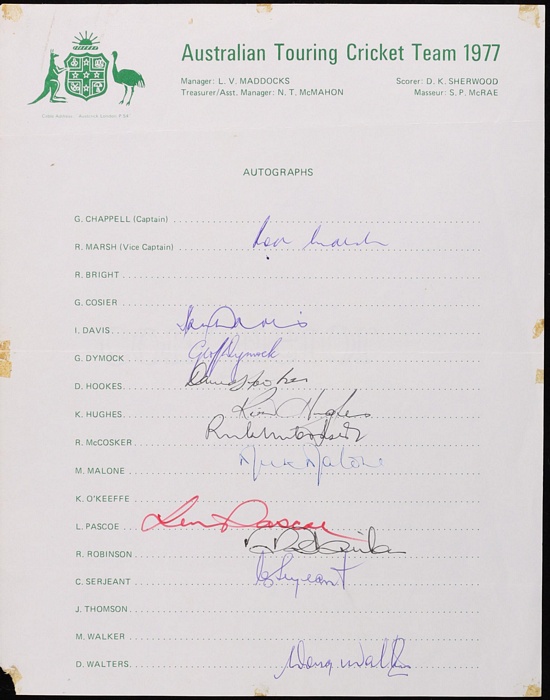 Australian Touring Cricket Team 1977
Manager: L. V. MADDOCKS
Scorer: D. K. SHERWOOD
Treasurer/Asst. Manager: N. T. McMAHON
Masseur: S. P. McRAE
AUTOGRAPHS
G. CHAPPELL (Captain)
R. MARSH (Vice Captain) Rod Marsh
R. BRIGHT
G. COSIER
I. DAVIS Ian Davis
G. DYMOCK Geoff Dymock
D. HOOKES David Hookes
K. HUGHES Kim Hughes
R. McCOSKER
M. MALONE Mick Malone
K. O'KEEFFE
L. PASCOE Len Pascoe
R. ROBINSON
C. SERJEANT C Serjeant
J. THOMSON
M. WALKER
D. WALTERS Doug Walters